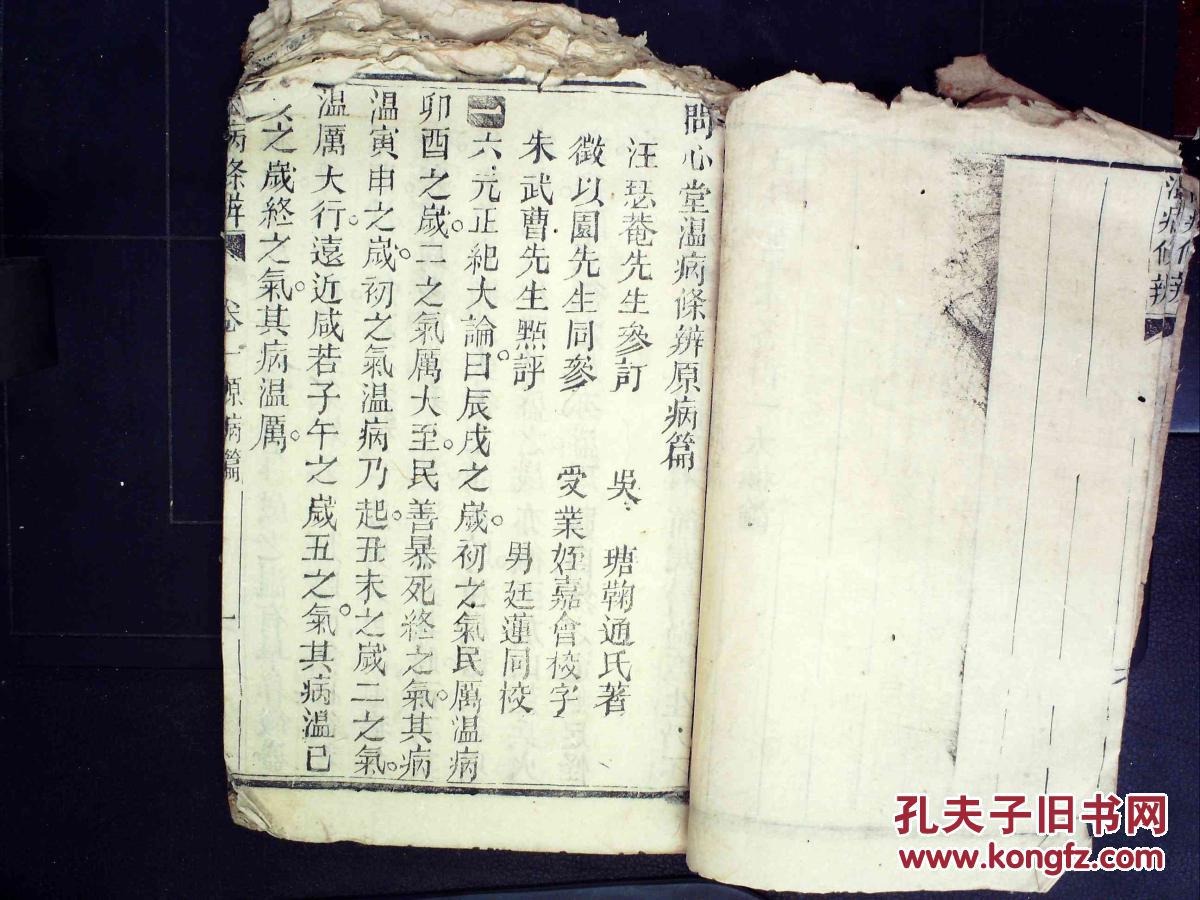 問心堂温病條辨原病篇
汪瑟菴先生參訂 吳 瑭鞠通氏著
徵以園先生同參 受業姪嘉會校字
朱武曹先生點評 男廷蓮同校
一六元正紀大論曰辰戌之歲。初之氣民厲温病
卯酉之歲。二之氣厲大至。民善暴死終之氣。其病
温寅申之歲。初之氣温病乃起。丑未之歲二之氣。
温厲大行。遠近咸若子午之歲丑之氣。其病温巳
之歲終之氣。其病温厲。
病條辨 卷一原病篇 一
孔夫子旧书网
www.kongfz.com